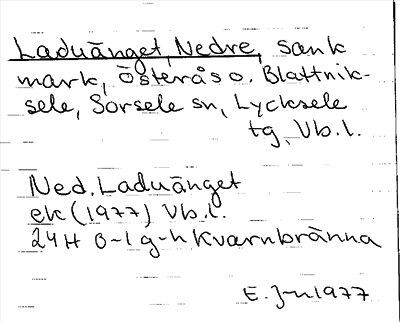 Laduänget, Nedre, sank
mark, Österås o. Blattnik-
sele, Sorsele sn, Lycksele
tg, Vb.l.
Ned. Laduänget
ek (1977) Vb.l.
24H 0-1 g-h Kvarnbränna
E. Jn 1977